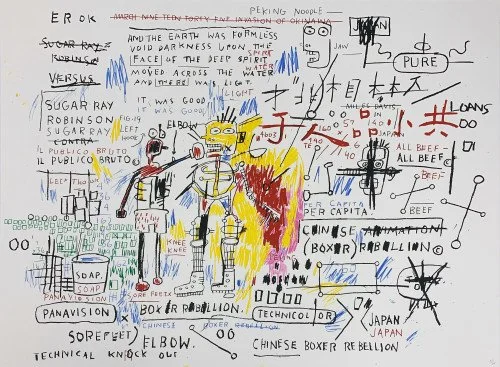 EROK
PEKING NOODLE —
MARCH NINE TEEN FORTY FIVE INVASION OF OKINAWA
SUGAR RAY
ROBINSON
VERSUS
AND THE EARTH WAS FORMLESS
VOID DARKNESS UPON THE
FACE OF THE DEEP SPIRIT
SPIRIT
MOVED ACROSS THE WATER
WATER
AND THERE WAS LIGHT.
LIGHT
IT WAS GOOD
IT WAS GOOD
JAW
PURE
SUGAR RAY
ROBINSON
SUGAR RAY
CONTRA
IL PUBLICO BRUTO
IL PUBLICO BRUTO ©
FIG. 19
LEFT
HOOK
ELBOW
MILES DAVIS
IN
JAPAN
于人品小共
LOANS
ALL BEEF -
ALL BEEF
BEEF
BEEF
PER CAPITA
PER CAPITA.
CHINESE ANIMATION
(BOXER) REBELLION ©
KNEE
KNEE
SOAP.
SOAP
PANAVISION
SORE FEET
PANAVISION
X
BOXER REBELLION.
TECHNICOLOR
CHINESE BOXER REBELLION
JAPAN
JAPAN
SORE FEET)
ELBOW.
CHINESE BOXER REBELLION
TECHNICAL KNOCK OUT